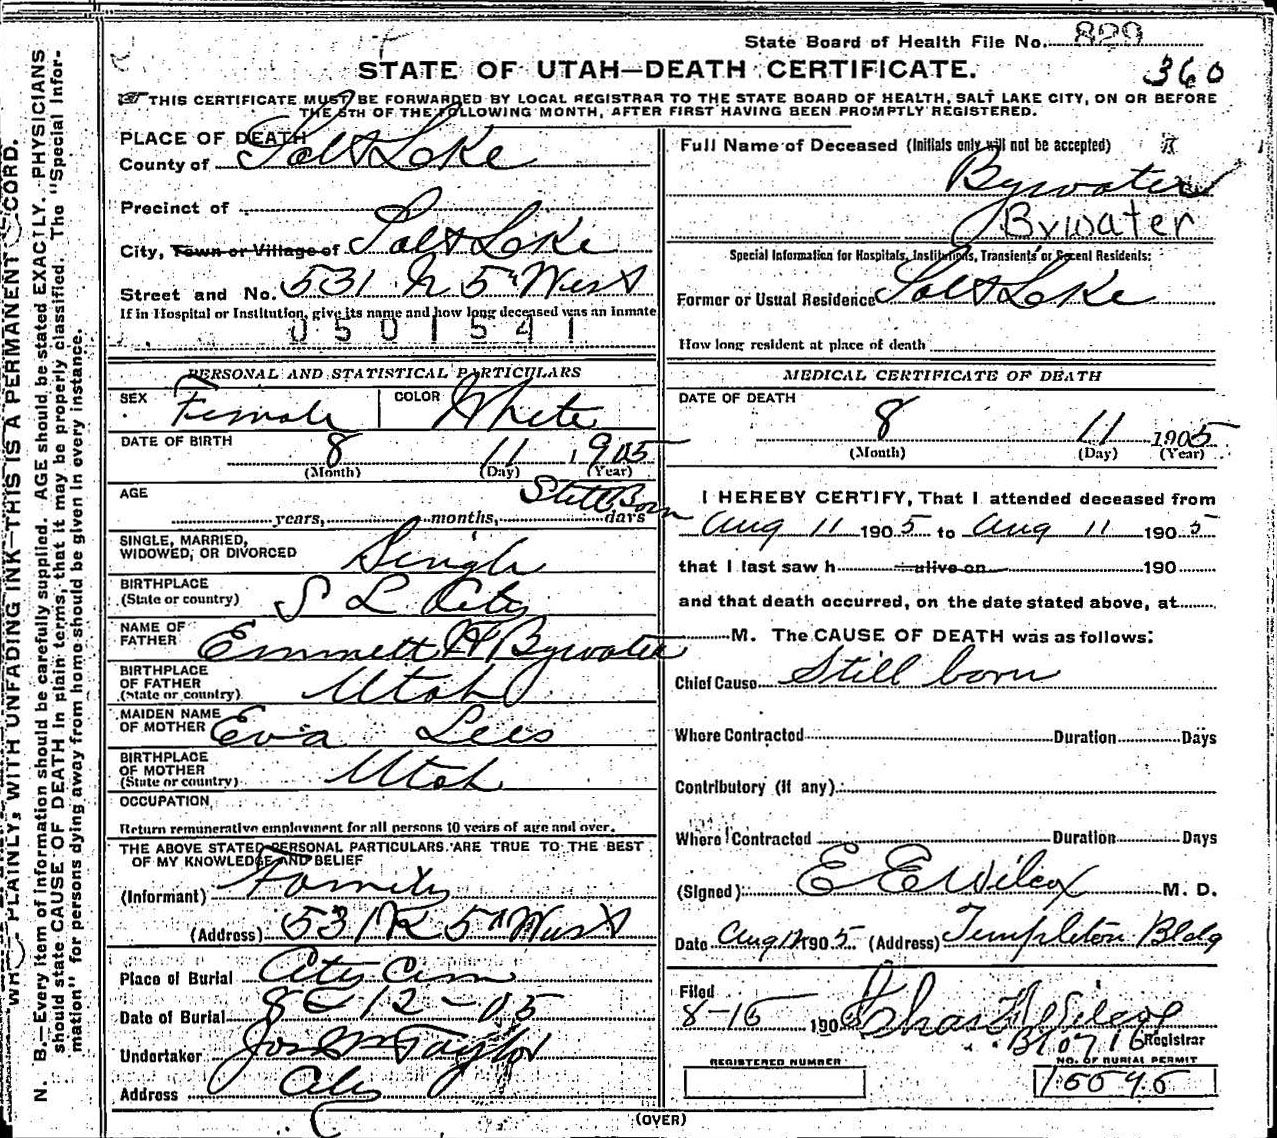 State Board of Health File No. 829
360
STATE OF UTAH—DEATH CERTIFICATE.
THIS CERTIFICATE MUST BE FORWARDED BY LOCAL REGISTRAR TO THE STATE BOARD OF HEALTH, SALT LAKE CITY, ON OR BEFORE
THE 5TH OF THE FOLLOWING MONTH, AFTER FIRST HAVING BEEN PROMPTLY REGISTERED.
PLACE OF DEATH
County of Salt Lake
Precinct of
City, Town or Village of Salt Lake
Street and No. 531 N 5" West
If in Hospital or Institution, give its name and how long deceased was an inmate
0501541
PERSONAL AND STATISTICAL PARTICULARS
SEX Female COLOR White
DATE OF BIRTH 8 11 1905
(Month) (Day) (Year)
AGE Still Born
years, months, days
SINGLE, MARRIED,
WIDOWED, OR DIVORCED Single
BIRTHPLACE
(State or country) S L City
NAME OF
FATHER Emmett Bywater
BIRTHPLACE
OF FATHER
(State or country) Utah
MAIDEN NAME
OF MOTHER Eva Lees
BIRTHPLACE
OF MOTHER
(State or country) Utah
OCCUPATION
Return remunerative employment for all persons 10 years of age and over.
THE ABOVE STATED PERSONAL PARTICULARS ARE TRUE TO THE BEST
OF MY KNOWLEDGE AND BELIEF
(Informant) Family
(Address) 531 N 5" West
Place of Burial City Cem
Date of Burial 8-12-05
Undertaker Jos Wm Taylor
Address City
Full Name of Deceased (Initials only will not be accepted)
Bywater
Bywater
Special Information for Hospitals, Institutions, Transients or Recent Residents:
Former or Usual Residence Salt Lake
How long resident at place of death
MEDICAL CERTIFICATE OF DEATH
DATE OF DEATH
8 11 1905
(Month) (Day) (Year)
I HEREBY CERTIFY, That I attended deceased from
Aug 11 1905 to Aug 11 1905
that I last saw h alive on 190
and that death occurred, on the date stated above, at
M. The CAUSE OF DEATH was as follows:
Chief Cause Still born
Where Contracted Duration Days
Contributory (if any)
Where Contracted Duration Days
(Signed) E E Wilcox M. D.
Date Aug 12 1905 (Address) Templeton Bldg
Filed
8-15 190 Chas
Registrar
REGISTERED NUMBER
NO. OF BURIAL PERMIT
(OVER)
N. B.—Every item of information should be carefully supplied. AGE should be stated EXACTLY. PHYSICIANS
should state CAUSE OF DEATH in plain terms, that it may be properly classified. The "Special Infor-
mation" for persons dying away from home should be given in every instance.
PLAINLY, WITH UNFADING INK—THIS IS A PERMANENT